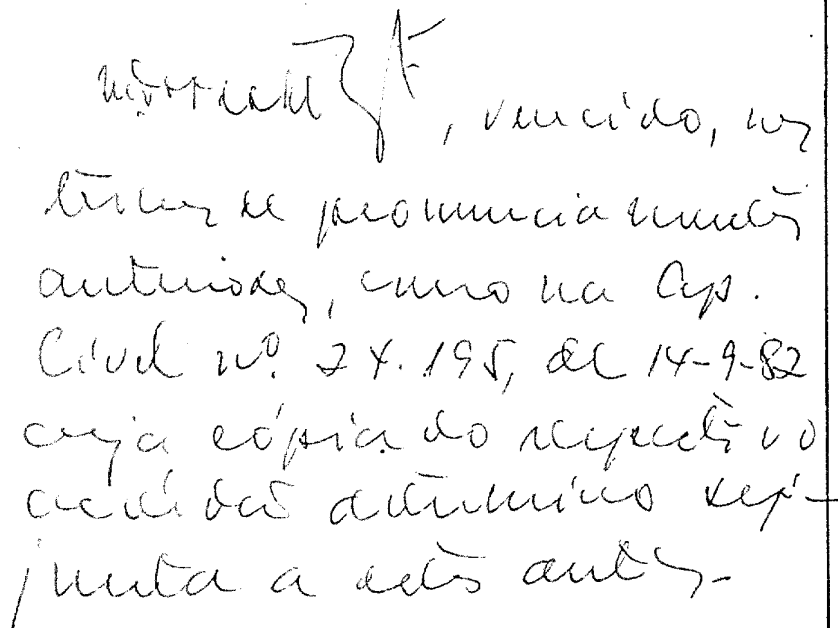 , vencido, nos
termos de pronunciamentos
anteriores, como na Ap.
Cível nº. 24.195, de 14-9-82
cuja cópia do respectivo
acórdão determino seja
junta a estes autos.